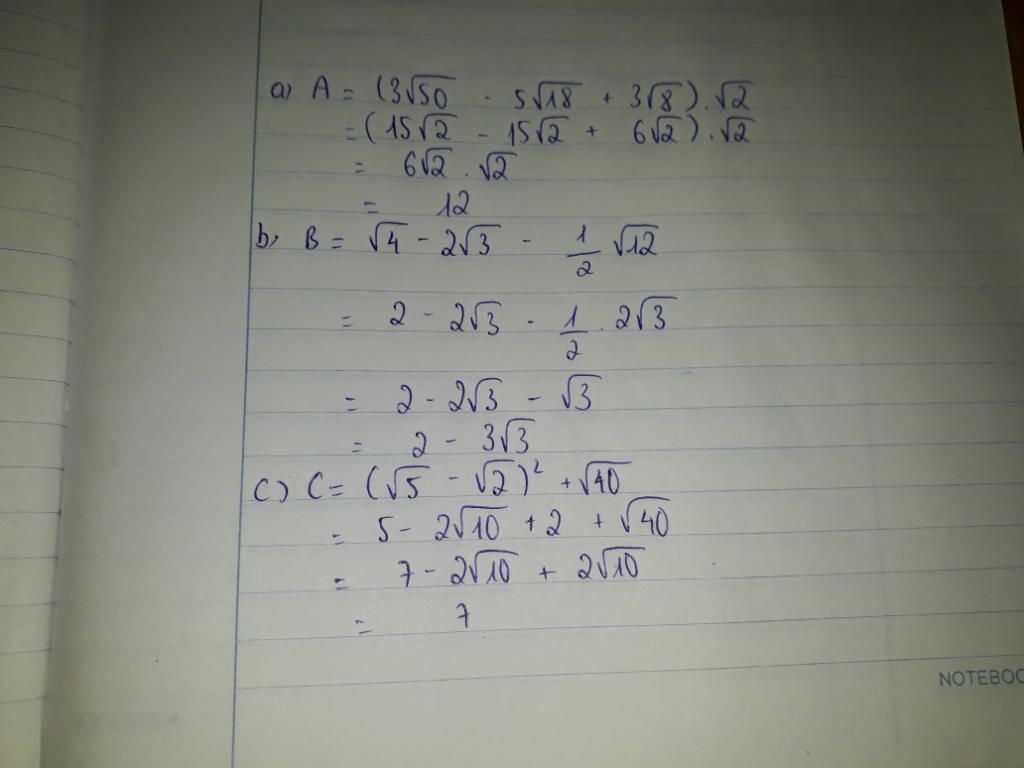 a) A = (3√50 - 5√18 + 3√8).√2
= (15√2 - 15√2 + 6√2).√2
= 6√2 . √2
= 12
b, B = √4 - 2√3 - 1/2 √12
= 2 - 2√3 - 1/2 . 2√3
= 2 - 2√3 - √3
= 2 - 3√3
C) C = (√5 - √2)² + √40
= 5 - 2√10 + 2 + √40
= 7 - 2√10 + 2√10
= 7
NOTEBOO